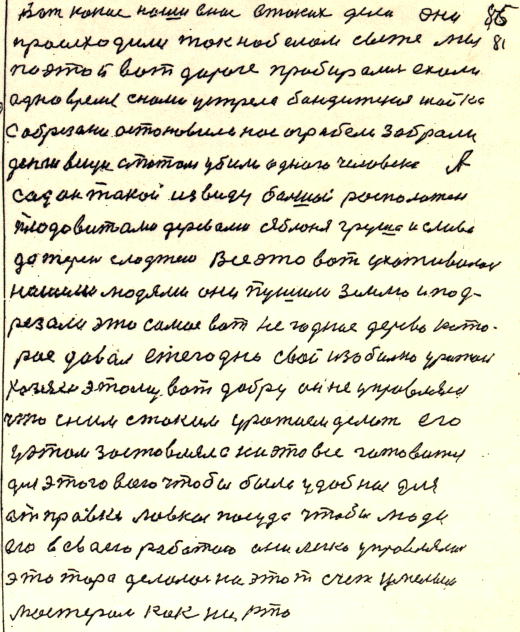 Вот какие наши были в таких дела они 85
происходили так на белом свете мы 81
по этой вот дороге пробирались ехали
одно время с нами устрела бандитская шайка
с обрезами остоновила нас ограбела забрали
деньги вещи а потом убили одного человека А
сад он такой из виду большой росположен
плодовитами деревами с яблоня грушка и слива
да терен сладжею Все это вот ухаживалось
нашими людями они пушили землю и под-
резали это самое вот не годное дерево кото-
рае давал ежегодно свой изобилно урожаи
хозяин этому вот добру он не управлялся
что с ним с таким урожаем делат его
у этом заставляла на это все готовится
для этого всего чтобы была удобная для
отправки ловкая посуда чтобы люди
его в сваего работою они легко управляли
это тора делалось на этот счет умелым
мастером как ни кто